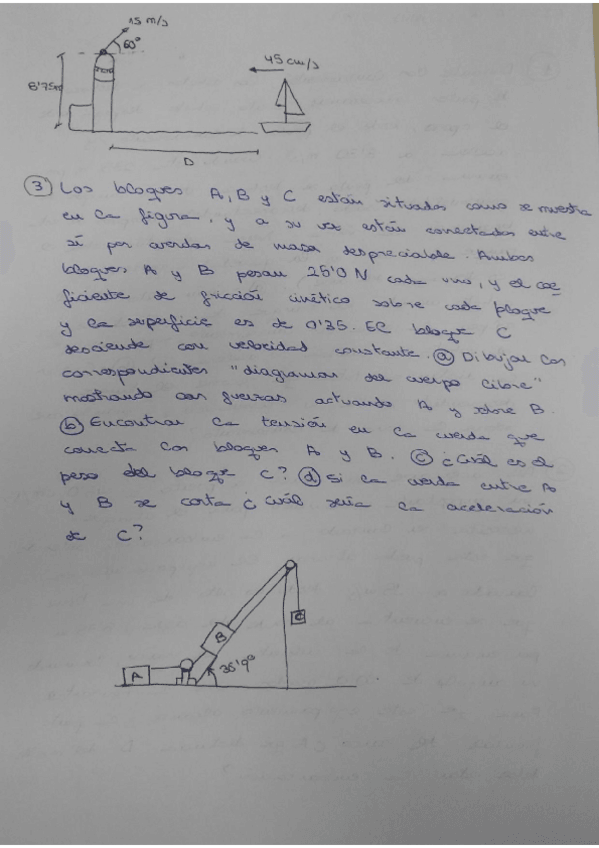 15 m/s
60°
45 cm/s
8'75m
D
③ Los bloques A, B y C están situados como se muestra
en la figura, y a su vez están conectados entre
sí por cuerdas de masa despreciable. Ambos
bloques A y B pesan 25'0 N cada uno, y el coe_
ficiente de fricción cinético sobre cada bloque
y la superficie es de 0'35. El bloque C
desciende con velocidad constante. ⓐ Dibujar los
correspondientes "diagramas del cuerpo libre"
mostrando las fuerzas actuando A y sobre B.
ⓑ Encontrar la tensión en la cuerda que
conecta los bloques A y B. ⓒ ¿Cuál es el
peso del bloque C? ⓓ Si la cuerda entre A
y B se corta ¿Cuál sería la aceleración
de C?
C
B
A
36'9°